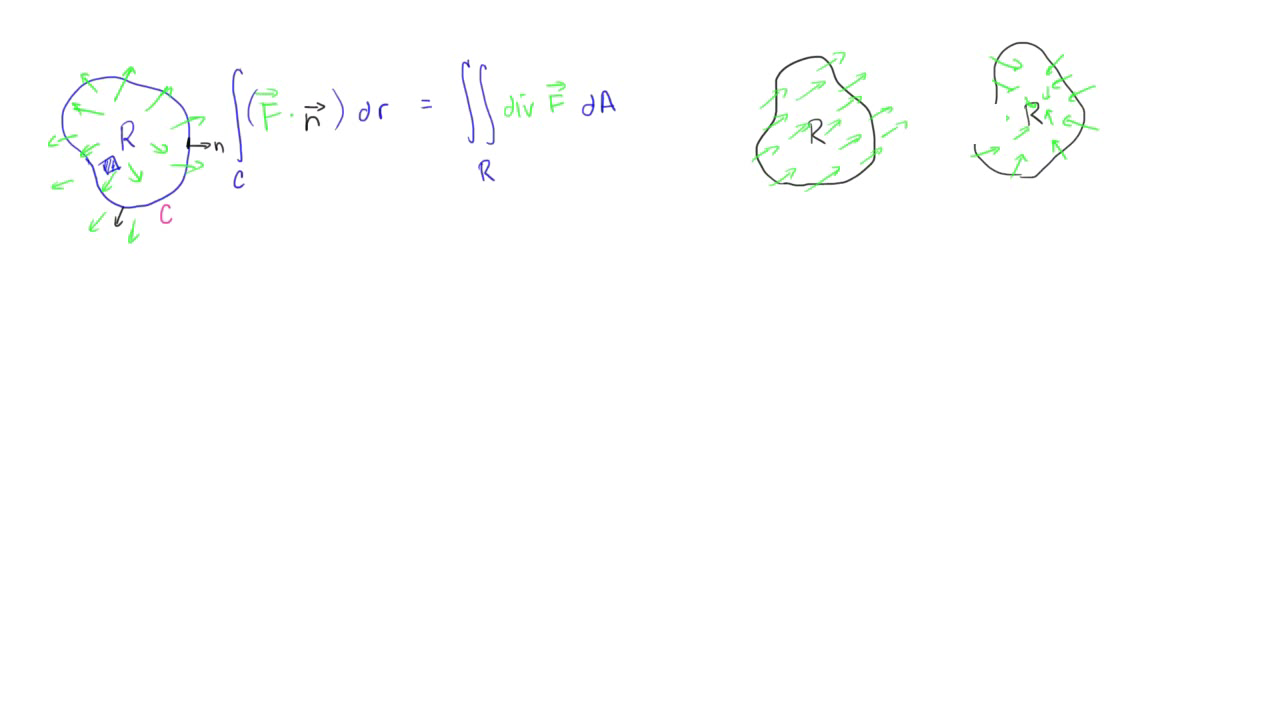 R n C ∫_C (F⃗ · n⃗) dr = ∬_R div F⃗ dA
R
R